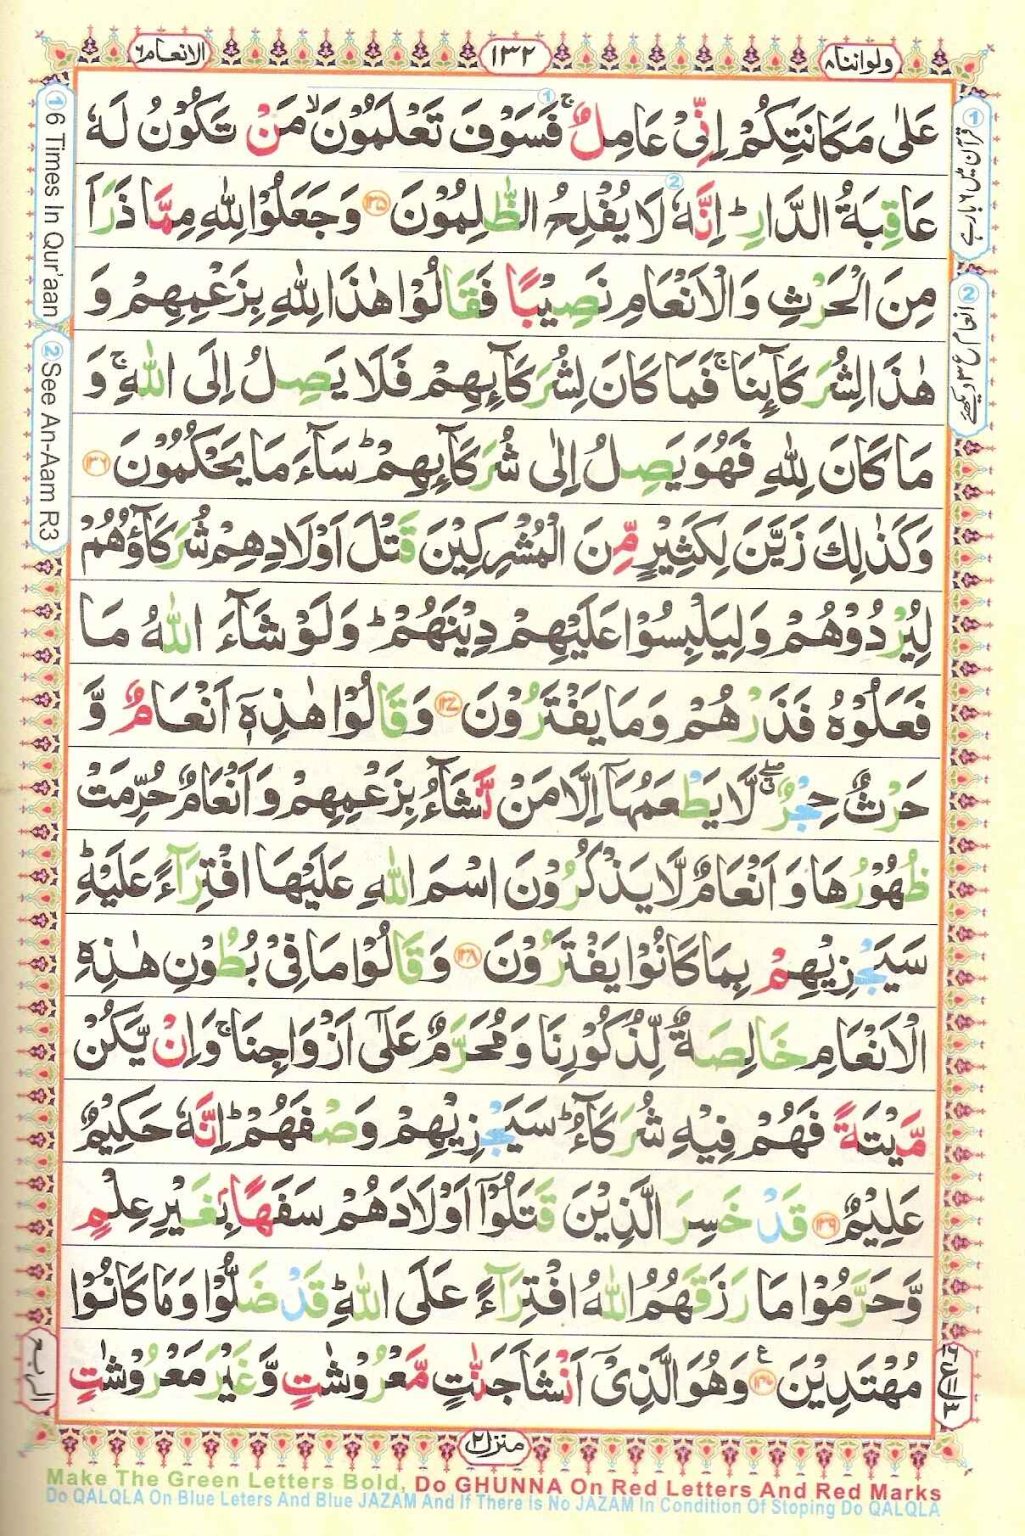 ولواننا ٨
١٣٢
الانعام ٦
عَلٰى مَكَانَتِكُمْ اِنِّىْ عَامِلٌ ۚ فَسَوْفَ تَعْلَمُوْنَ ۙ مَنْ تَكُوْنُ لَهٗ
عَاقِبَةُ الدَّارِ ؕ اِنَّهٗ لَا يُفْلِحُ الظّٰلِمُوْنَ ١٣٥ وَجَعَلُوْا لِلّٰهِ مِمَّا ذَرَاَ
مِنَ الْحَرْثِ وَالْاَنْعَامِ نَصِيْبًا فَقَالُوْا هٰذَا لِلّٰهِ بِزَعْمِهِمْ وَ
هٰذَا لِشُرَكَآئِنَا ۚ فَمَا كَانَ لِشُرَكَآئِهِمْ فَلَا يَصِلُ اِلَى اللّٰهِ ۚ وَ
مَا كَانَ لِلّٰهِ فَهُوَ يَصِلُ اِلٰى شُرَكَآئِهِمْ ؕ سَآءَ مَا يَحْكُمُوْنَ ١٣٦
وَكَذٰلِكَ زَيَّنَ لِكَثِيْرٍ مِّنَ الْمُشْرِكِيْنَ قَتْلَ اَوْلَادِهِمْ شُرَكَآؤُهُمْ
لِيُرْدُوْهُمْ وَلِيَلْبِسُوْا عَلَيْهِمْ دِيْنَهُمْ ؕ وَلَوْ شَآءَ اللّٰهُ مَا
فَعَلُوْهُ فَذَرْهُمْ وَمَا يَفْتَرُوْنَ ١٣٧ وَقَالُوْا هٰذِهٖۤ اَنْعَامٌ وَّ
حَرْثٌ حِجْرٌ ۖ لَّا يَطْعَمُهَاۤ اِلَّا مَنْ نَّشَآءُ بِزَعْمِهِمْ وَاَنْعَامٌ حُرِّمَتْ
ظُهُوْرُهَا وَاَنْعَامٌ لَّا يَذْكُرُوْنَ اسْمَ اللّٰهِ عَلَيْهَا افْتِرَآءً عَلَيْهِ ؕ
سَيَجْزِيْهِمْ بِمَا كَانُوْا يَفْتَرُوْنَ ١٣٨ وَقَالُوْا مَا فِىْ بُطُوْنِ هٰذِهِ
الْاَنْعَامِ خَالِصَةٌ لِّذُكُوْرِنَا وَمُحَرَّمٌ عَلٰٓى اَزْوَاجِنَا ۚ وَاِنْ يَّكُنْ
مَّيْتَةً فَهُمْ فِيْهِ شُرَكَآءُ ؕ سَيَجْزِيْهِمْ وَصْفَهُمْ ؕ اِنَّهٗ حَكِيْمٌ
عَلِيْمٌ ١٣٩ قَدْ خَسِرَ الَّذِيْنَ قَتَلُوْۤا اَوْلَادَهُمْ سَفَهًۢا بِغَيْرِ عِلْمٍ
وَّحَرَّمُوْا مَا رَزَقَهُمُ اللّٰهُ افْتِرَآءً عَلَى اللّٰهِ ؕ قَدْ ضَلُّوْا وَمَا كَانُوْا
مُهْتَدِيْنَ ١٤٠ ع وَهُوَ الَّذِىْۤ اَنْشَاَ جَنّٰتٍ مَّعْرُوْشٰتٍ وَّغَيْرَ مَعْرُوْشٰتٍ
① قرآن میں ٦ بار ہے
② انعام ع ٣ دیکھئے
①6 Times In Qur'aan
②See An-Aam R3
الربع
منزل ٢
Make The Green Letters Bold, Do GHUNNA On Red Letters And Red Marks
Do QALQLA On Blue Leters And Blue JAZAM And If There Is No JAZAM In Condition Of Stoping Do QALQLA